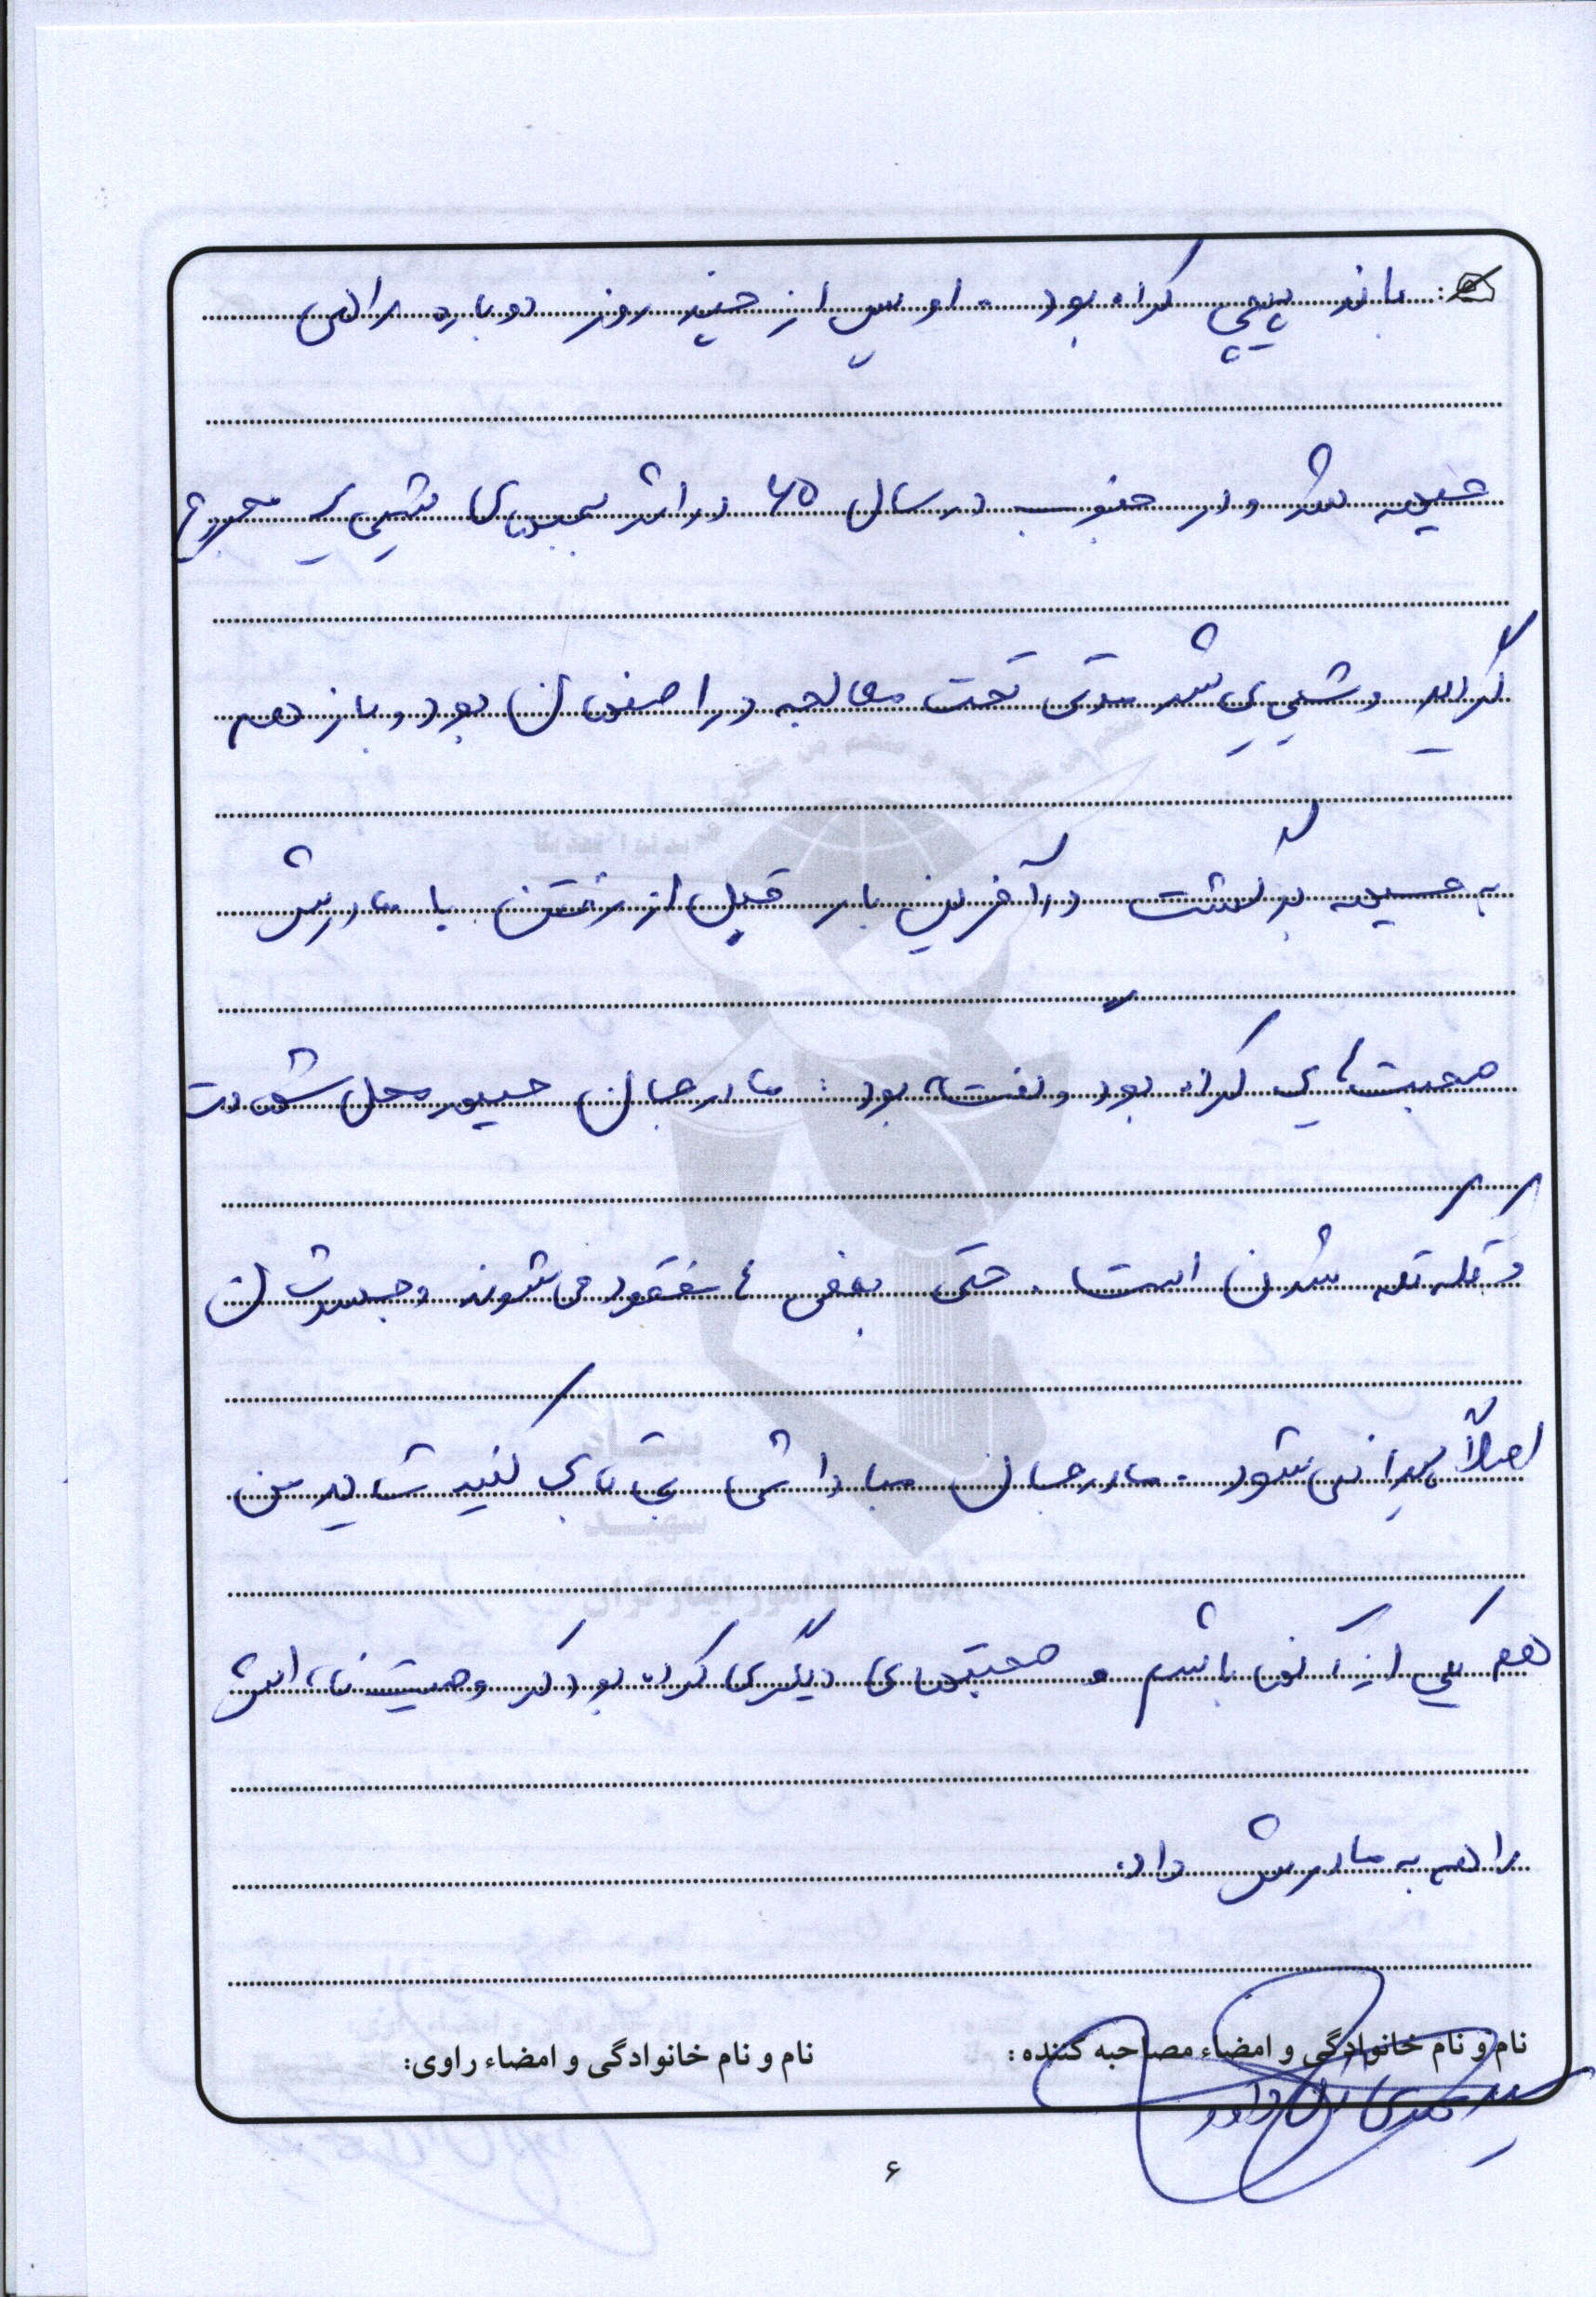 باند پیچی کرده بود. او پس از چند روز دوباره راهی
جبهه شد و در جنوب در سال ۶۵ در اثر بمبهای شیمیایی مجروح
گردید و شیمیایی شد مدتی تحت معالجه در اصفهان بود و باز هم
به جبهه برگشت در آخرین بار قبل از رفتن با مادرش
صحبتهایی کرده بود و گفته بود: مادر جان جبهه محل شهادت
و تکه تکه شدن است. حتی بعضی ها مفقود می شوند و جسدشان
اصلاً پیدا نمی شود. مادر جان مبادا شما بی تابی کنید شاید من
هم یکی از آنها باشم و صحبتهای دیگری کرده بود که وصیت نامه اش
را هم به مادرش داد.
نام و نام خانوادگی و امضاء مصاحبه کننده:
نام و نام خانوادگی و امضاء راوی:
سید مهدی آل داود
۶